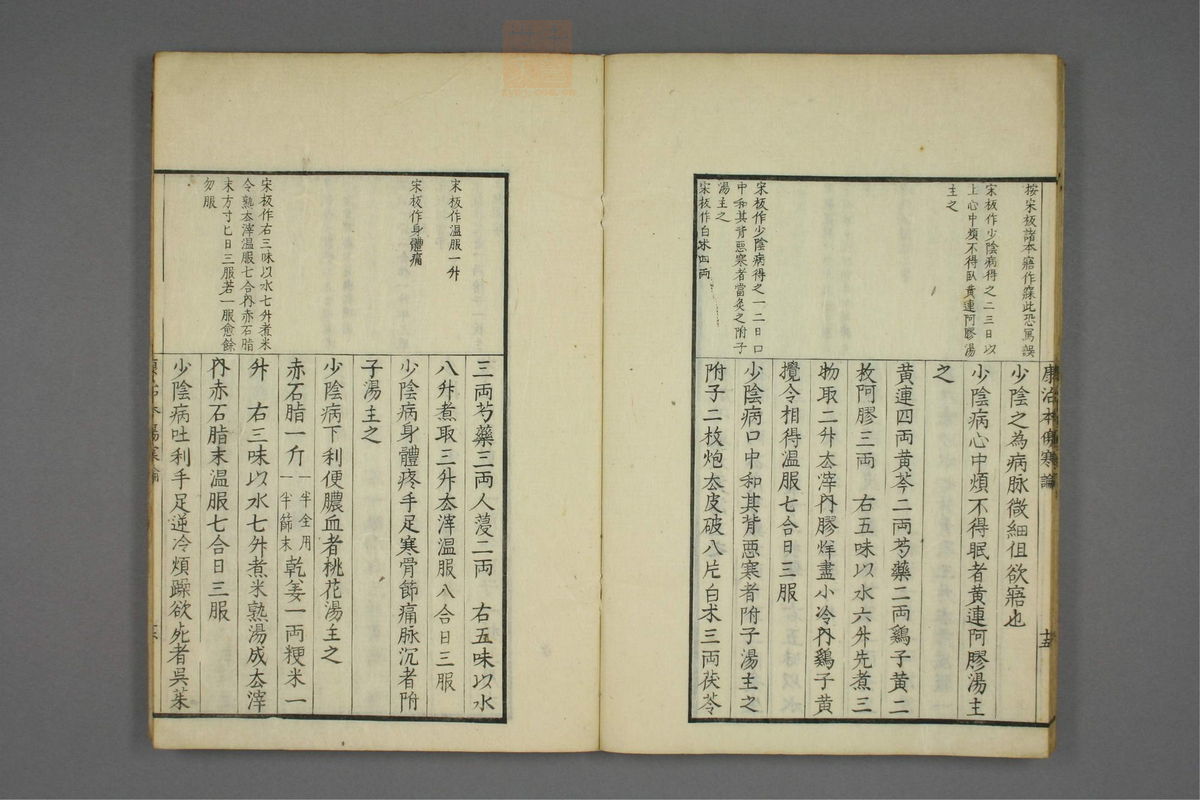 康治本傷寒論
十五
按宋板諸本寤作寐此恐寫誤
宋板作少陰病得之二三日以
上心中煩不得臥黃連阿膠湯
主之
宋板作少陰病得之一二日口
中和其背惡寒者當灸之附子
湯主之
宋板作白朮四兩
少陰之為病脉微細但欲寤也
少陰病心中煩不得眠者黃連阿膠湯主
之
黃連四兩黃芩二兩芍藥二兩鷄子黃二
枚阿膠三兩　右五味以水六升先煮三
物取二升去滓內膠烊盡小冷內鷄子黃
攪令相得溫服七合日三服
少陰病口中和其背惡寒者附子湯主之
附子二枚炮去皮破八片白朮三兩茯苓
宋板作溫服一升
宋板作身體痛
宋板作右三味以水七升煮米
令熟去滓溫服七合內赤石脂
末方寸匕日三服若一服愈餘
勿服
三兩芍藥三兩人薓二兩　右五味以水
八升煮取三升去滓溫服八合日三服
少陰病身體疼手足寒骨節痛脉沉者附
子湯主之
少陰病下利便膿血者桃花湯主之
赤石脂一斤一半全用一半篩末乾姜一兩粳米一
升　右三味以水七升煮米熟湯成去滓
內赤石脂末溫服七合日三服
少陰病吐利手足逆冷煩躁欲死者吳茱